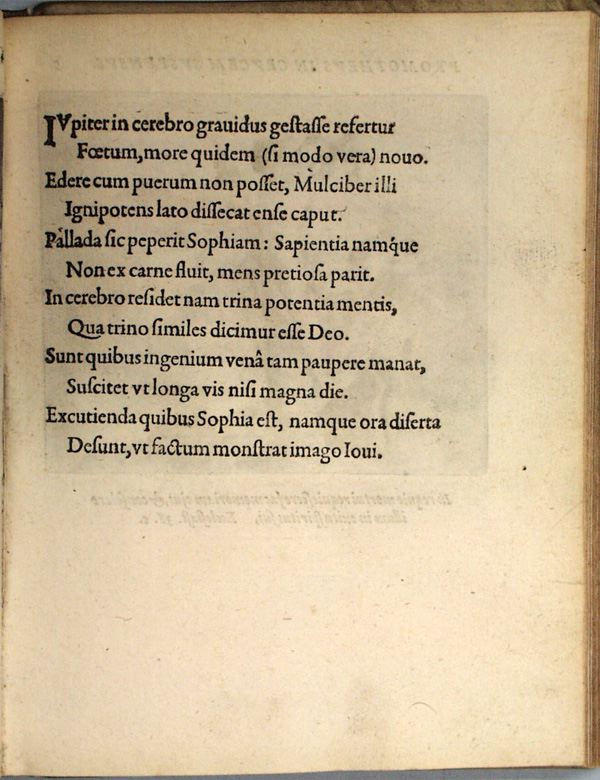 IVpiter in cerebro grauidus gestasse refertur
Fœtum, more quidem (si modo vera) nouo.
Edere cum puerum non posset, Mulciber illi
Ignipotens lato dissecat ense caput.
Pállada sic peperit Sophiam: Sapientia namque
Non ex carne fluit, mens pretiosa parit.
In cerebro residet nam trina potentia mentis,
Qua trino similes dicimur esse Deo.
Sunt quibus ingenium venâ tam paupere manat,
Suscitet vt longa vis nisi magna die.
Excutienda quibus Sophia est, namque ora diserta
Desunt, vt factum monstrat imago Ioui.